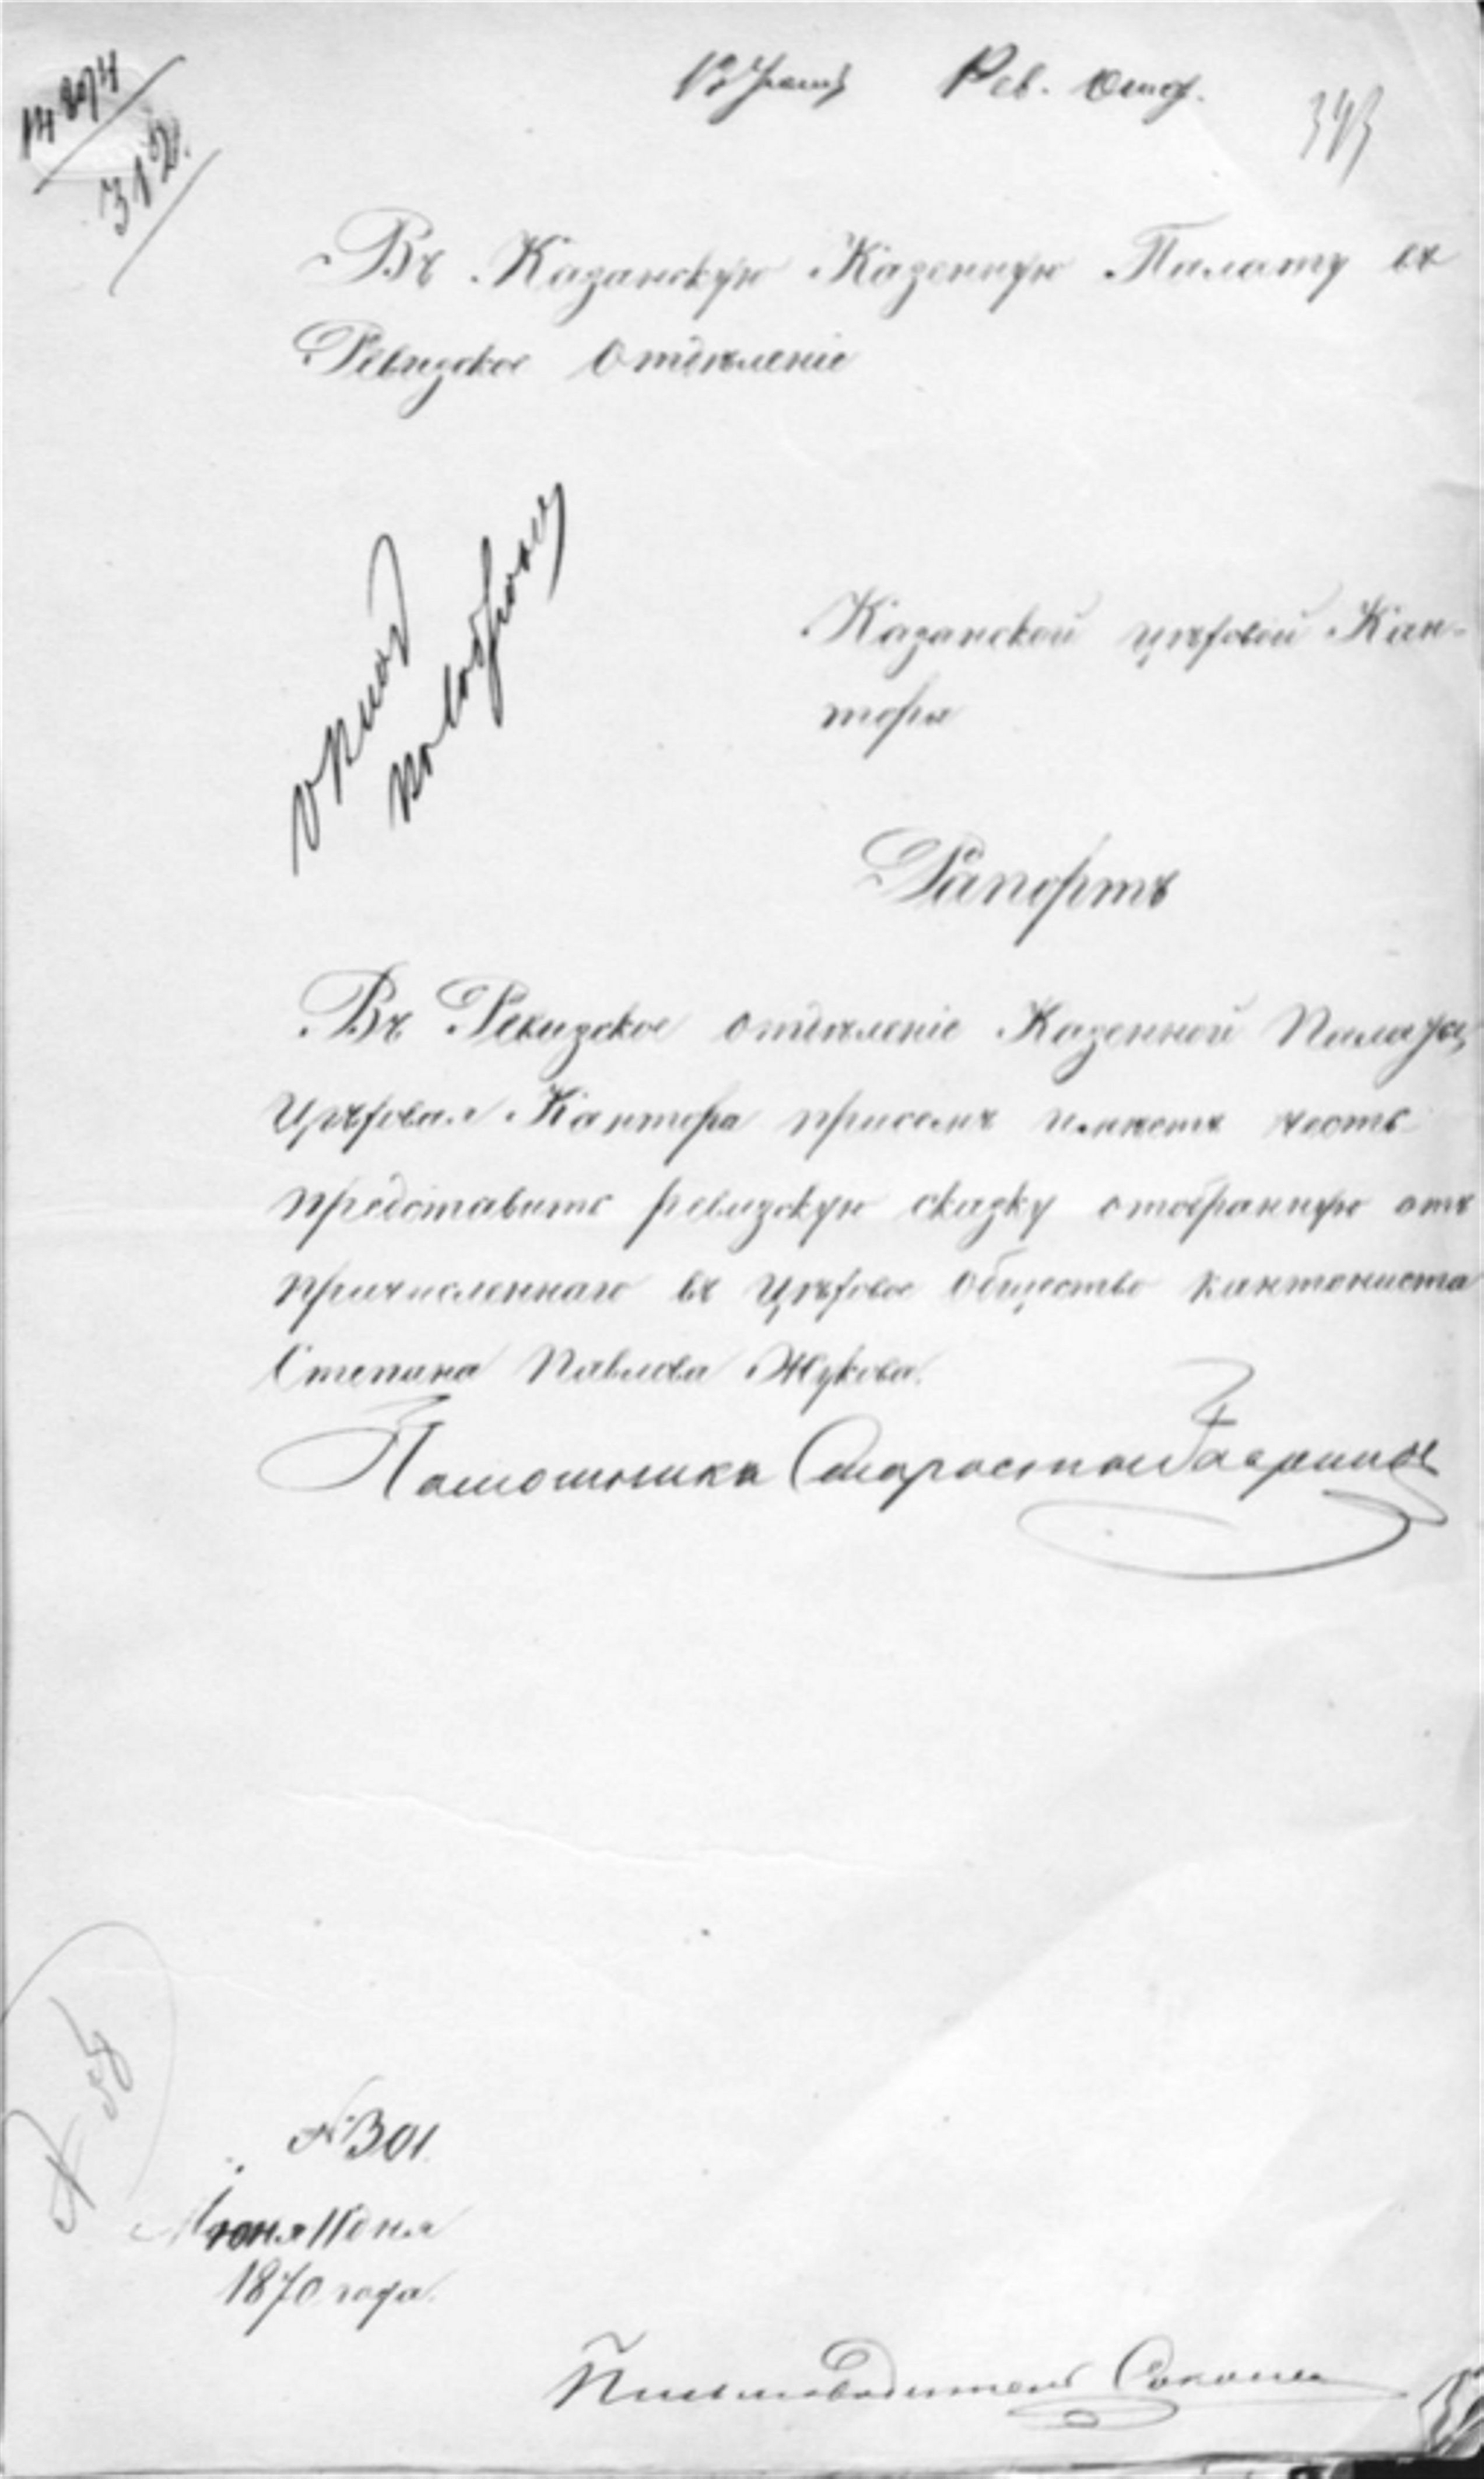 14874
312.
Рев. Отд.
343
Въ Казанскую Казенную Палату въ
Ревизское Отдѣленіе
Казанской цѣховой Кан-
торы
Рапортъ
Въ Ревизское отдѣленіе Казенной Палаты,
Цѣховая Кантора присемъ имѣетъ честь
представить ревизскую сказку отобранную отъ
причисленнаго въ Цѣховое Общество кантониста
Степана Павлова Жукова.
Помошника Старосты
№ 301.
Іюня 11 дня
1870 года.
Письмоводитель